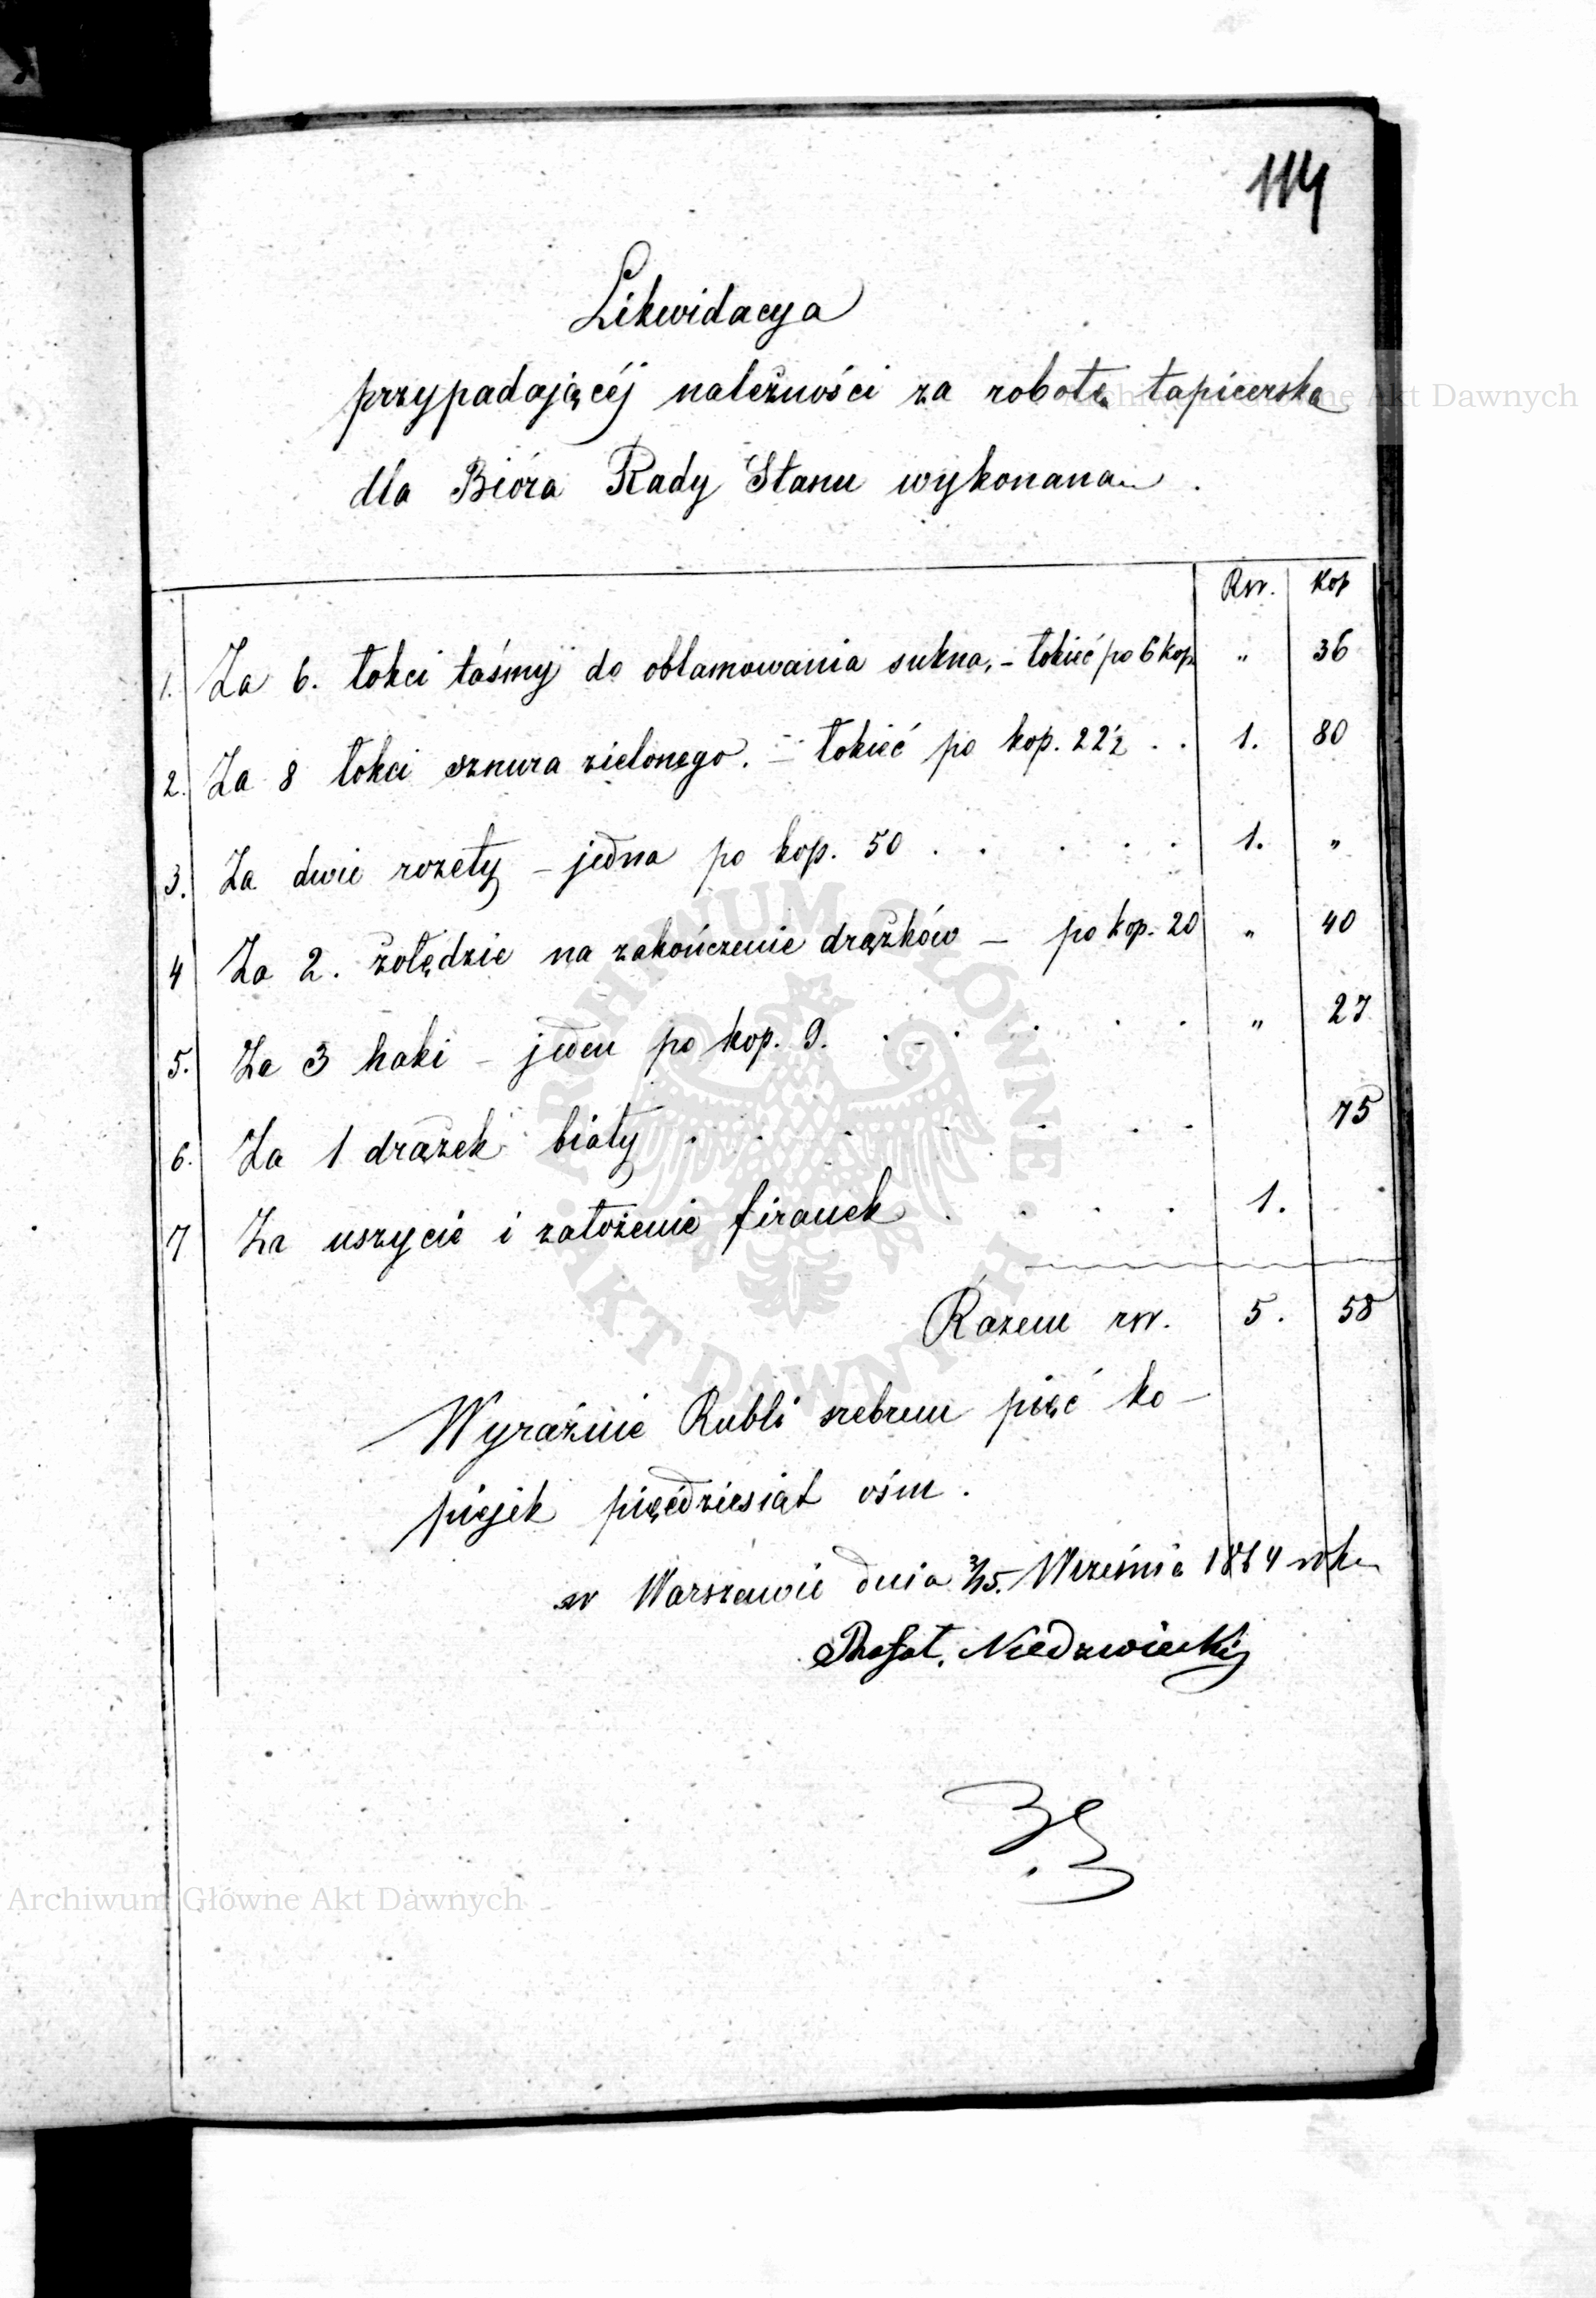 114
Likwidacya
przypadającéj należności za robotę tapicerską
dla Bióra Rady Stanu wykonaną.
Rsr. Kop
1. Za 6. łokci taśmy do oblamowania sukna, – łokieć po 6 kop „ 36
2. Za 8 łokci sznura zielonego. – łokieć po kop. 22½ . . 1. 80
3. Za dwie rozety – jedna po kop. 50 . . . . . . 1. „
4 Za 2. żołędzie na zakończenie drążków – po kop. 20 „ 40
5. Za 3 haki – jeden po kop. 9. . . . . . „ 27
6. Za 1 drążek biały . . . . . . . 75
7 Za uszycie i założenie firanek . . . . 1. .
Razem rsr. 5. 58
Wyraźnie Rubli srebrem pięć ko–
piejek pięćdziesiąt ośm.
w Warszawie dnia 3/15. Września 1864 roku
Rafał. Niedzwiecki
Archiwum Główne Akt Dawnych
Archiwum Główne Akt Dawnych
ARCHIWUM GŁÓWNE · AKT DAWNYCH ·